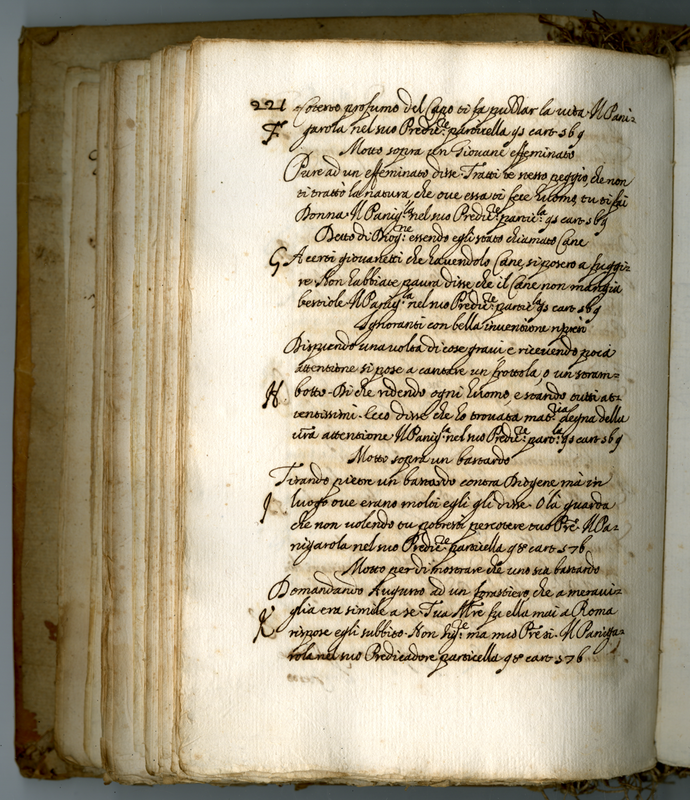 221 cotesto profumo del Capo ti fa puzzar la vita. Il Pani-
F garola nel suo Predic.re particella 95 cart. 569
Motto sopra un Giovane effeminato
Pure ad un effeminato disse. Tratti te stesso peggio, che non
ti trattò la natura che ove essa ti fece huomo, tu ti fai
Donna. Il Panig.la nel suo Predic.re partic.la 95 cart. 569
Detto di Diog.ne essendo egli stato chiamato Cane
G A certi giovanetti che havendolo Cane, si posero a fuggi-
re. Non habbiate paura disse che il Cane non mangia
bestiole. Il Panig.la nel suo Predic.re partic.la 95 cart. 569
Ignoranti con bella inventione ripresi
Dicendo una volta di cose gravi e ricevendo poca
attentione si pose a cantare un frottola, o un stram-
H botto. Di che ridendo ogni huomo, e stando tutti at-
tentissimi. Ecco disse che ho trovata mat.ria degna della
vra attentione. Il Panig.la nel suo Predic.re part.la 95 cart. 569
Motto sopra un bastardo
Tirando pietre un bastardo contra Diogene mà in
I luogo ove erano molti egli gli disse. Olà guarda
che non volendo tu potresti percotere tuo Pre. Il Pa-
nigarola nel suo Predic.re particella 98 cart. 576
Motto per dimostrare che uno sia bastardo
Domandando Augusto ad un forastiero, che a meravi-
glia era simile a se. Tua Mre fu ella mai a Roma
K rispose egli subbito. Non Sig.re ma mio Pre sì. Il Paniga-
rola nel suo Predicadore particella 98 cart. 576